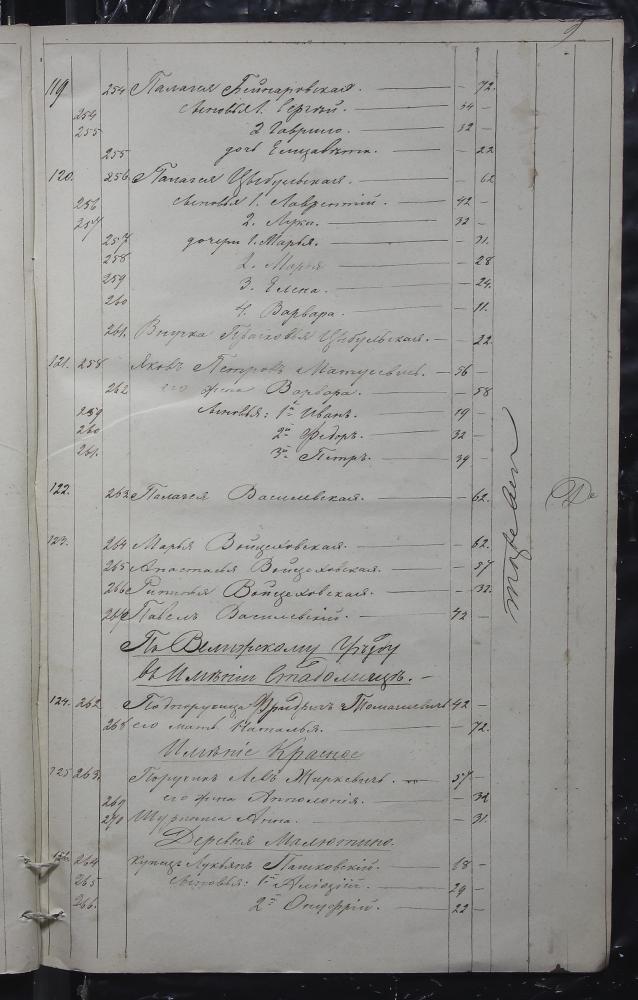 119 254 Палагея Бейнаровская. — 72.
254 сыновья 1. Сергѣй. 34 —
255 2 Гаврило. 32 —
255 дочь Елизавета. — 22
120. 256 Палагея Цыбульская. — 62
256 сыновья 1. Лаврентій. 42 —
257 2. Лука. 32 —
257 дочери 1. Марья. — 31.
258 2. Марья — 28
259 3. Елена. — 24.
260 4. Варвара. — 11.
261. Внучка Прасковья Цыбульская. — 22.
121. 258 Яковъ Петровъ Матусевичь. 56 —
262 его жена Варвара. — 58
259 сыновья: 1й Иванъ. 19 —
260 2й Федоръ. 32 —
261. 3й Петръ. 39 —
122. 263 Палагея Василевская. — 62.
123. 264 Марья Войцеховская. — 62.
265 Анастасья Войцеховская. — 37
266 Войцеховская. — 32.
267 Павелъ Василевскій. 42 —
По Велижскому Уѣзду
въ Имѣніи Стадолищѣ.
124. 262 Подпоручица Томашевичь 42 —
268 его мать Наталья. — 72.
Имѣніе Красное
125 263. Поручикъ Левъ Жиркевичь. 37 —
269 его жена Апполонія. — 32
270 Анна. — 31.
Деревня Малютино.
126. 264 Лукьянъ Пашковскій. 68 —
265 сыновья: 1й 29 —
266. 2й Онуфрій. 22 —